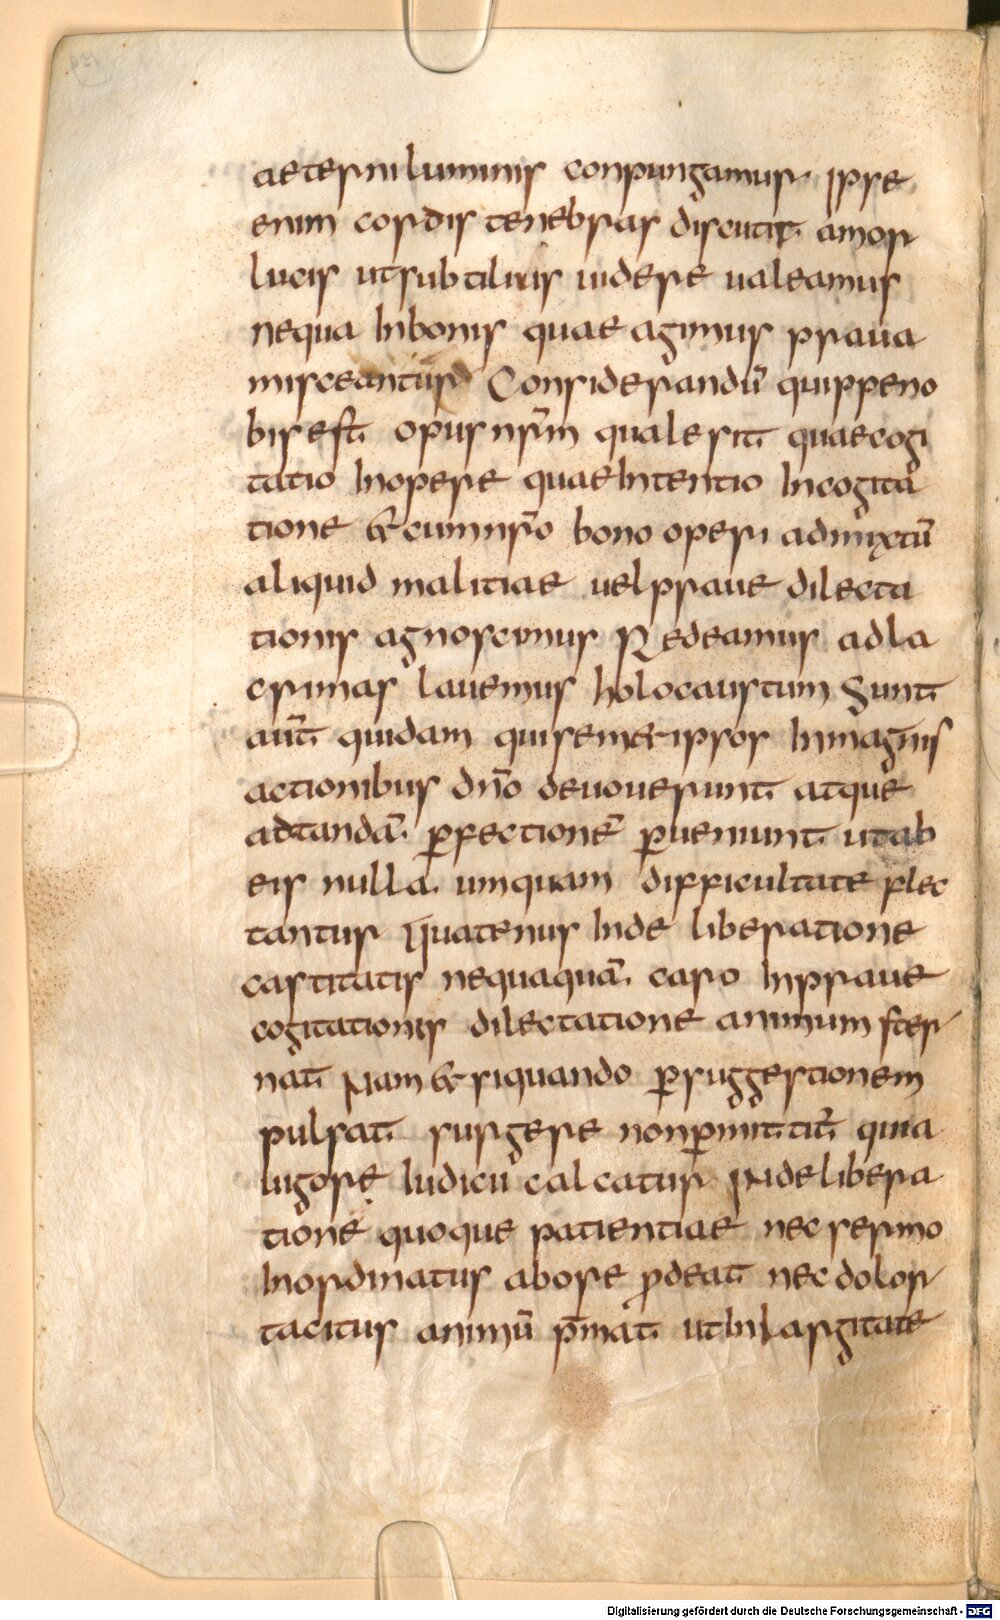 aeterni luminis conpungamur Ipse
enim cordis tenebras discutit amor
lucis ut subtilius uidere ualeamus
nequa Inbonis quae agimus praua
misceantur Considerandū quippe no
bis est opus nr̄m quale sit quae cogi
tatio Inopere quae Intentio Incogita
tione & cum nr̄o bono operi admixtū
aliquid malitiae uel praue dilecta
tionis agnoscimus Redeamus ad la
crimas lauemus holocaustum Sunt
aūt quidam qui sem&ipsos Inmagnis
actionibus dn̄o deuouerunt atque
ad tandā perfectionē perueniunt ut ab
eis nulla umquam difficultate flec
tantur Quatenus Inde liberatione
castitatis nequaquā caro Inpraue
cogitationis dilectatione animum ster
nat Nam & siquando per suggestionem
pulsat surgere non permittit̄ quia
uigore Iudicii calcatur Inde libera
tione quoque patientiae nec sermo
Inordinatus abore prodeat nec dolor
tacitus animū p̄mat ut Inlargitate
Digitalisierung gefördert durch die Deutsche Forschungsgemeinschaft - DFG